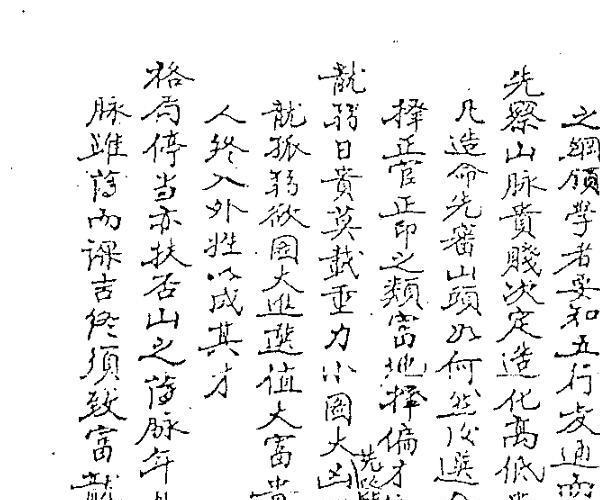 之綱領學者要知五行变通
先察山脉貴賤次定造化高低
凡造命先審山頭如何然後選
擇正官正印之類富地擇偏才
龍弱日貴莫栽重力小圖大凶
龍孤弱欲圖大
值大富貴
人終入外性以成其才
格局停当亦扶否山之薄脉年
脉雖薄而課吉終須致富龍